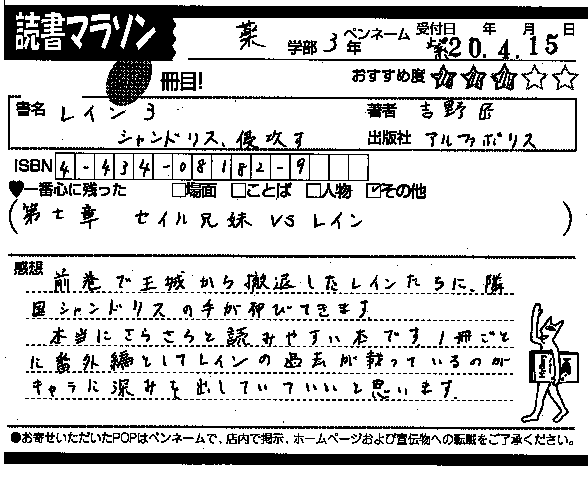 読書マラソン
薬 学部 3年 ペンネーム 受付日 年 月 日
紫 20.4.15
冊目! おすすめ度 ★★★☆☆
書名 レイン3 著者 吉野匠
シャンドリス、侵攻す 出版社 アルファポリス
ISBN 4-434-08182-9
♥一番心に残った □場面 □ことば □人物 ☑その他
(第七章 セイル兄妹 VS レイン)
感想
前巻で王城から撤退したレインたちに、隣
国シャンドリスの手が伸びてきます
本当にさらさらと読みやすい本です 1冊ごと
に番外編としてレインの過去が載っているのが
キャラに深みを出していていいと思います.
●お寄せいただいたPOPはペンネームで、店内で掲示、ホームページおよび宣伝物への転載をご了承ください。